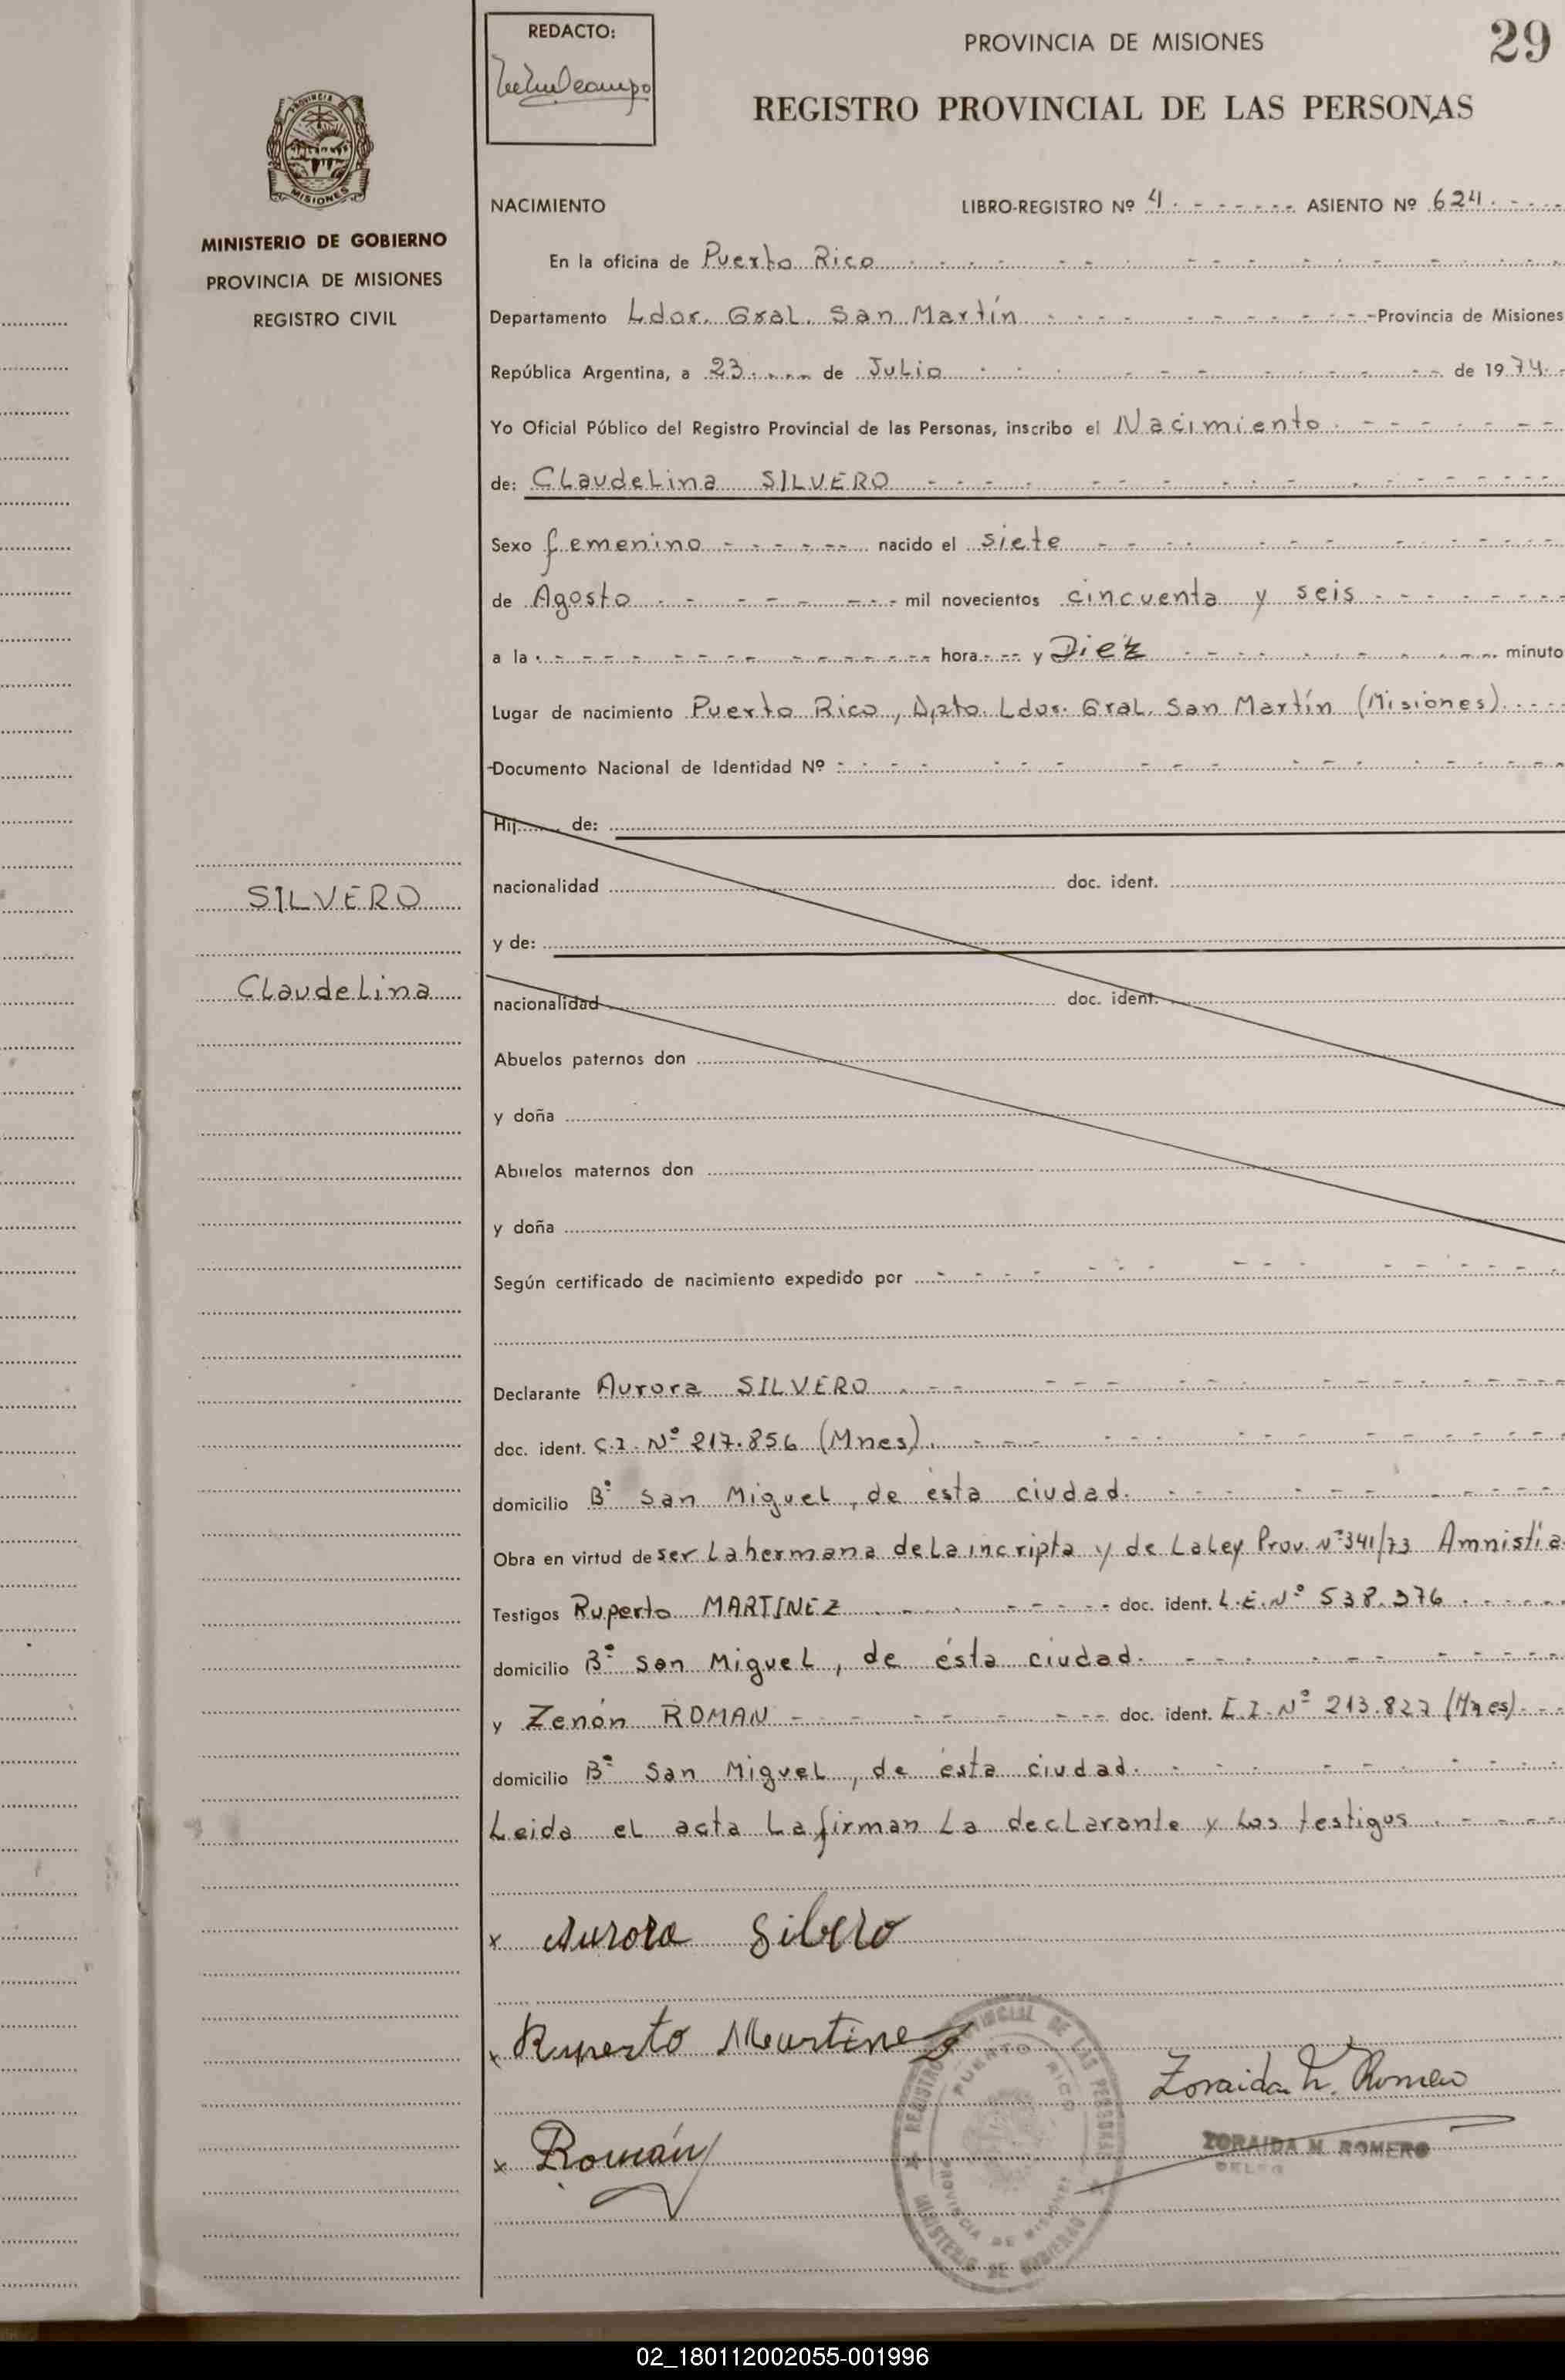 REDACTO:
PROVINCIA DE MISIONES
29
REGISTRO PROVINCIAL DE LAS PERSONAS
PROVINCIA DE
MISIONES
MINISTERIO DE GOBIERNO
PROVINCIA DE MISIONES
REGISTRO CIVIL
NACIMIENTO LIBRO-REGISTRO Nº 4 ASIENTO Nº 624
En la oficina de Puerto Rico
Departamento Ldor. Gral. San Martín Provincia de Misiones
República Argentina, a 23 de Julio de 1974
Yo Oficial Público del Registro Provincial de las Personas, inscribo el Nacimiento
de: Claudelina SILVERO
Sexo femenino nacido el siete
de Agosto mil novecientos cincuenta y seis
a la hora y Diez minuto
Lugar de nacimiento Puerto Rico, Dpto. Ldor. Gral. San Martín (Misiones)
Documento Nacional de Identidad Nº
Hij de:
SILVERO
nacionalidad doc. ident.
y de:
Claudelina
nacionalidad doc. ident.
Abuelos paternos don
y doña
Abuelos maternos don
y doña
Según certificado de nacimiento expedido por
Declarante Aurora SILVERO
doc. ident. C.I. Nº 217.856 (Mnes).
domicilio Bº San Miguel, de ésta ciudad.
Obra en virtud de ser la hermana de la incripta y de la Ley Prov. Nº 341/73 Amnistía
Testigos Ruperto MARTINEZ doc. ident. L.E. Nº 538.376
domicilio Bº San Miguel, de ésta ciudad.
y Zenón ROMAN doc. ident. C.I. Nº 213.827 (Mnes)
domicilio Bº San Miguel, de ésta ciudad.
Leida el acta la firman la declarante y los testigos
x Aurora Silvero
x Ruperto Martinez
Zoraida M. Romero
x Román
ZORAIDA M. ROMERO
REGISTRO PROVINCIAL DE LAS PERSONAS
PUERTO RICO
PROVINCIA DE MISIONES
MINISTERIO DE GOBIERNO
02_180112002055-001996